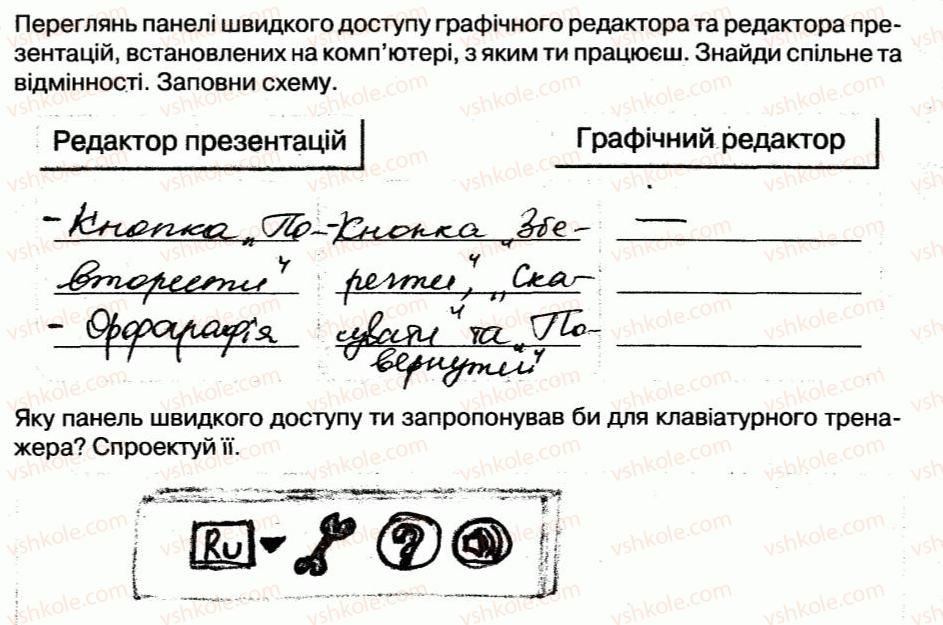 Переглянь панелі швидкого доступу графічного редактора та редактора пре-
зентацій, встановлених на комп'ютері, з яким ти працюєш. Знайди спільне та
відмінності. Заповни схему.
Редактор презентацій
Графічний редактор
- Кнопка „По-
вторести"
- Орфографія
- Кнопка „Збе-
регти", „Ска-
сувати" та „По-
вернути"
—
Яку панель швидкого доступу ти запропонував би для клавіатурного трена-
жера? Спроектуй її.
Ru ?